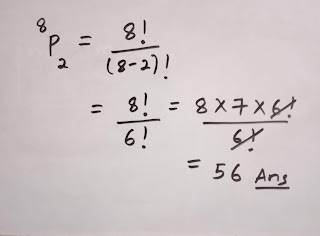 ⁸P₂ = 8!/(8-2)!
= 8!/6! = 8×7×6!/6!
= 56 Ans